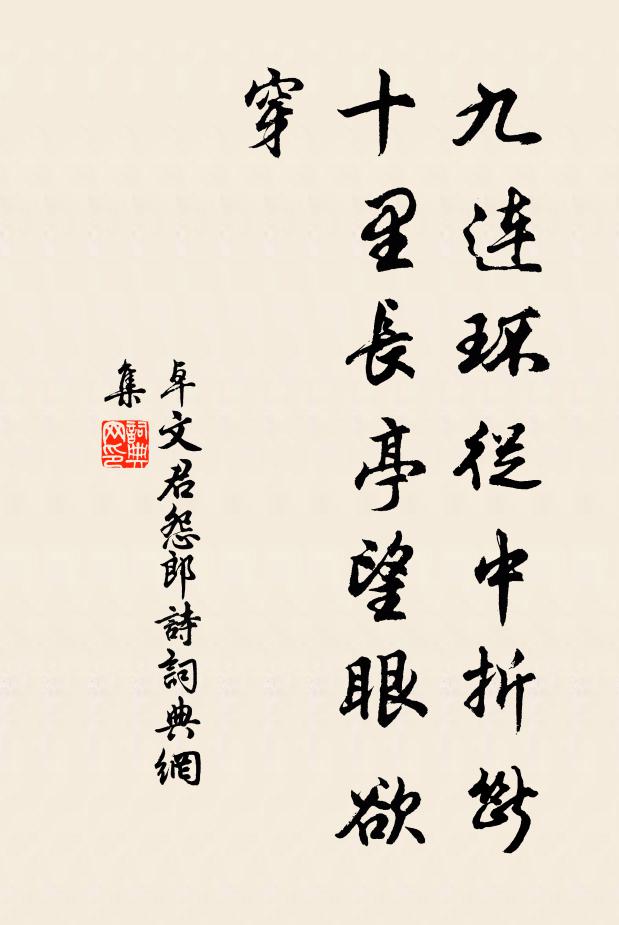 九連環從中折斷
十里長亭望眼欲
穿
卓文君怨郎詩詞典網
集
詞典
网印